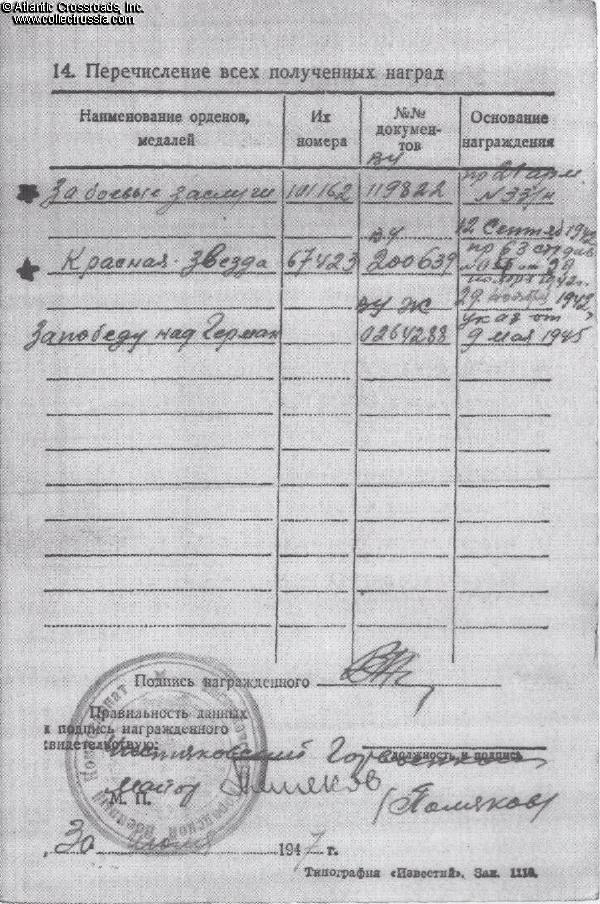 © Atlantic Crossroads, Inc.
www.collectrussia.com
14. Перечисление всех полученных наград
Наименование орденов, медалей
Их номера
№№ документов
Основание награждения
За боевые заслуги 101162 ВУ 119822 пр 21 арм № 33/н
12 Сентяб 1942
Красная-звезда 67423 ВУ 200639 пр 63 от 28
ноября 1942г.
29 ноября 1942,
За победу над Герман ЗУ Ж 0264288 указ от 9 мая 1945
Подпись награжденного
Правильность данных
и подпись награжденного
свидетельствую:
должность и подпись
майор Поляков
М. П.
(Поляков)
„ 30 июля 1947 г.
Типография «Известий». Зак. 1118.